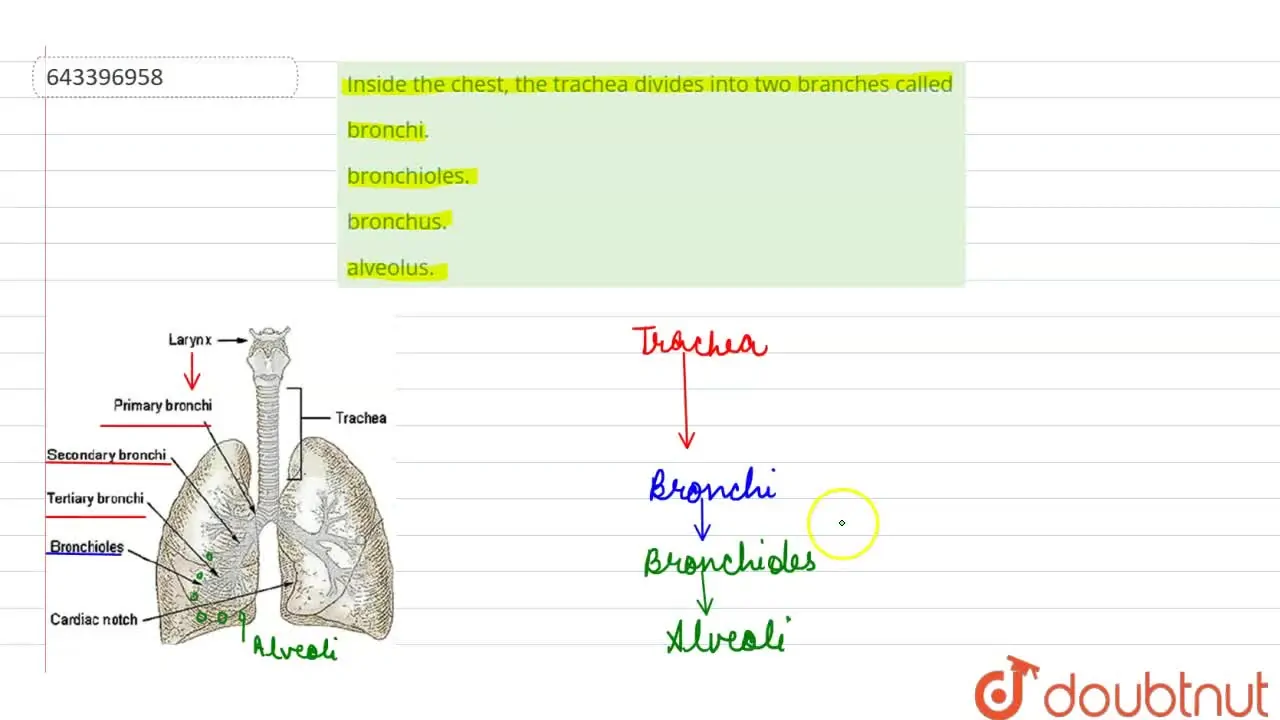 643396958
Inside the chest, the trachea divides into two branches called
bronchi.
bronchioles.
bronchus.
alveolus.
Larynx
Primary bronchi
Trachea
Secondary bronchi
Tertiary bronchi
Bronchioles
Cardiac notch
Alveoli
Trachea
Bronchi
Bronchioles
Alveoli
doubtnut